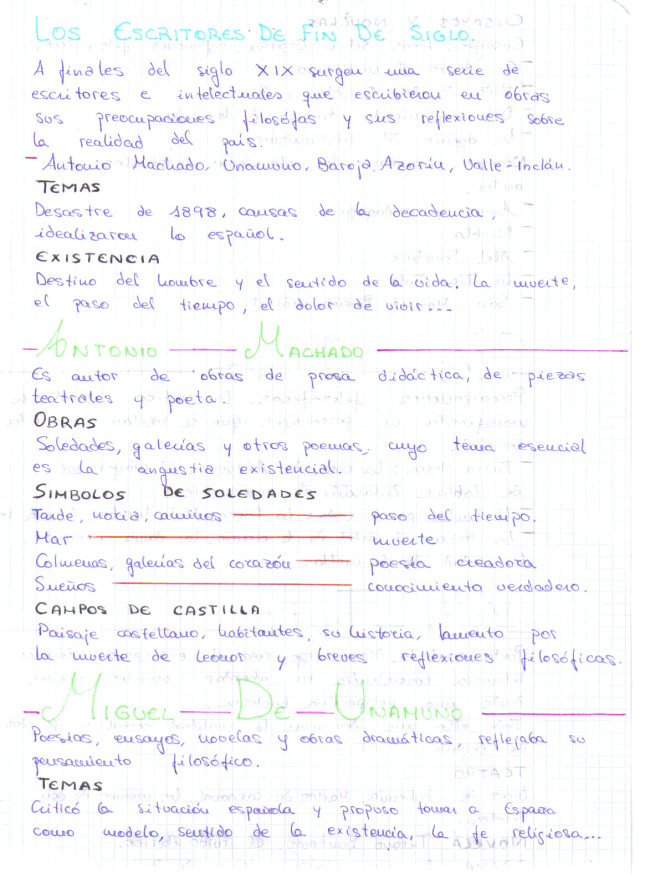 LOS ESCRITORES DE FIN DE SIGLO.
A finales del siglo XIX surgen una serie de
escritores e intelectuales que escribieron en obras
sus preocupaciones filosófas y sus reflexiones sobre
la realidad del país.
- Antonio Machado, Unamuno, Baroja, Azorín, Valle-Inclán.
TEMAS
Desastre de 1898, causas de la decadencia,
idealizaron lo español.
EXISTENCIA
Destino del hombre y el sentido de la vida. La muerte,
el paso del tiempo, el dolor de vivir...
- ANTONIO MACHADO
Es autor de obras de prosa didáctica, de piezas
teatrales y poeta.
OBRAS
Soledades, galerías y otros poemas, cuyo tema esencial
es la angustia existencial.
SIMBOLOS DE SOLEDADES
Tarde, noria, caminos — paso del tiempo.
Mar — muerte
Colmenas, galerías del corazón — poesía creadora
Sueños — conocimiento verdadero.
CAMPOS DE CASTILLA
Paisaje castellano, habitantes, su historia, lamento por
la muerte de Leonor y breves reflexiones filosóficas.
- MIGUEL DE UNAMUNO
Poesías, ensayos, novelas y obras dramáticas, reflejaba su
pensamiento filosófico.
TEMAS
Criticó la situación española y propuso tomar a España
como modelo, sentido de la existencia, la fe religiosa...